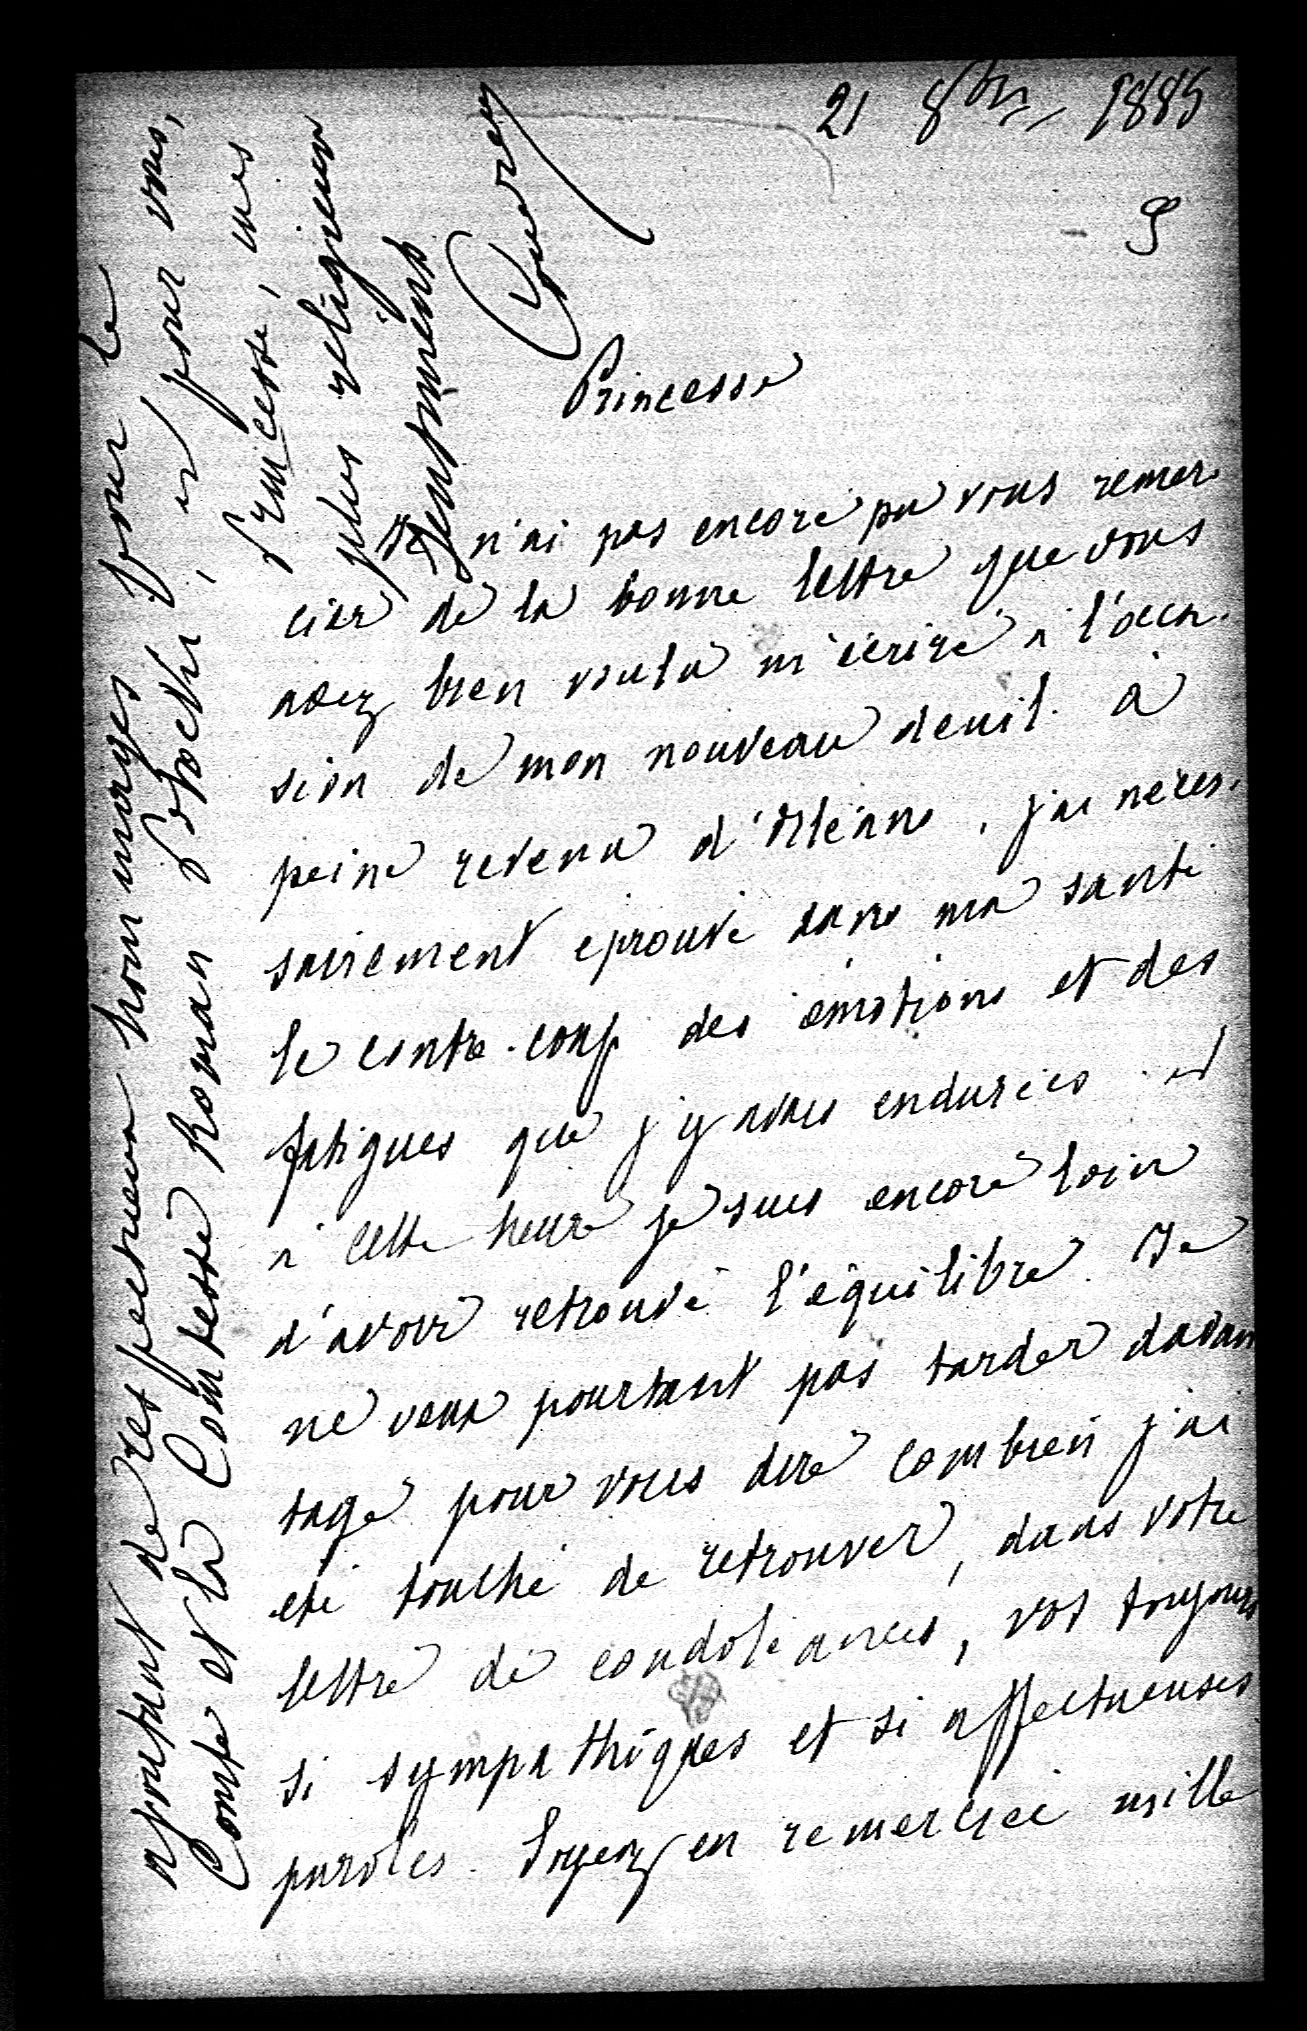 21 8bre 1885
9
Princesse
Je n'ai pas encore pu vous remer
cier de la bonne lettre que vous
avez bien voulu m'écrire à l'occa-
sion de mon nouveau deuil. à
peine revenu d'Orléans, j'ai néces-
sairement éprouvé dans ma santé
le contre-coup des émotions et des
fatigues que j'y avais endurées et
à cette heure je suis encore loin
d'avoir retrouvé l'équilibre. Je
ne veux pourtant pas tarder davan
tage pour vous dire combien j'ai
été touché de retrouver, dans votre
lettre de condoléances, vos toujours
si sympathiques et si affectueuses
paroles. Soyez en remerciée mille
ajoutant de respectueux hommages pour le
Comte et la Comtesse Roman Potocki, et pour vous,
Princesse, mes
plus religieux
sentiments